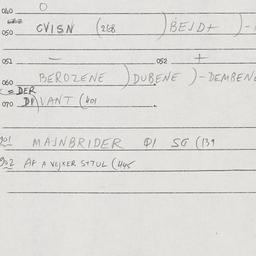 040 O
050 CVISN (268 )BEJD+ )-
051 — 052 +
060 BEROZENE )DUBENE )-DEMBENE
= DER
070 DI) VANT (401
901 MAJNBRIDER DI SG (139
902 AF A VEJKER STTUL (445